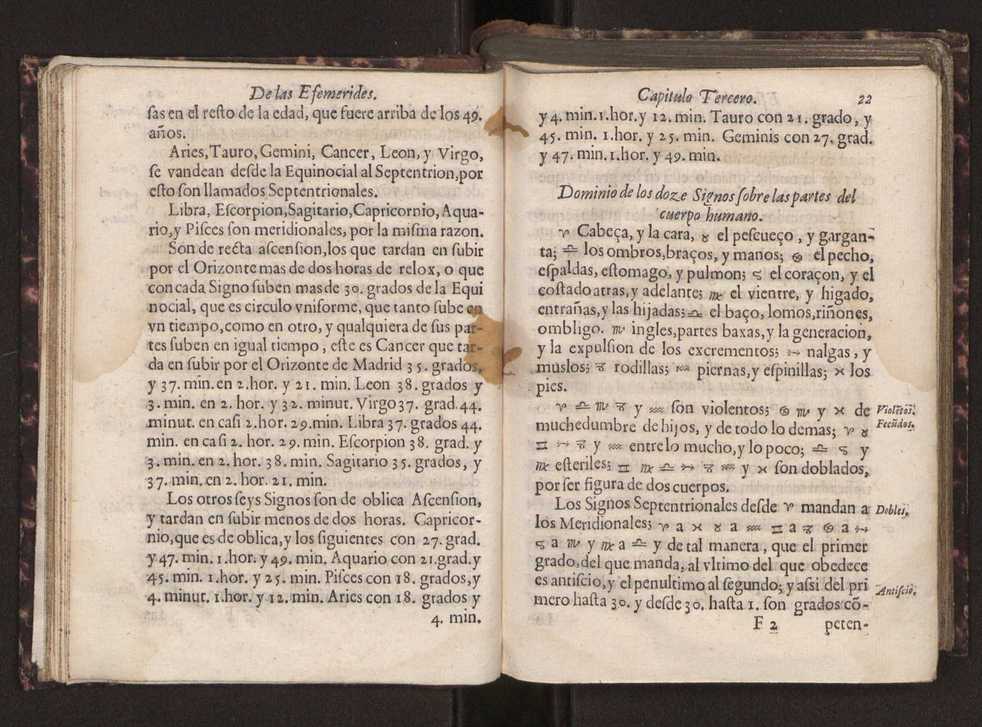 De las Efemerides.
ſas en el reſto de la edad, que fuere arriba de los 49.
años.
Aries, Tauro, Gemini, Cancer, Leon, y Virgo,
ſe vandean deſde la Equinocial al Septentrion, por
eſto ſon llamados Septentrionales.
Libra, Eſcorpion, Sagitario, Capricornio, Aqua-
rio, y Piſces ſon meridionales, por la miſma razon.
Son de recta aſcenſion, los que tardan en ſubir
por el Orizonte mas de dos horas de relox, o que
con cada Signo ſuben mas de 30. grados de la Equi
nocial, que es circulo vniforme, que tanto ſube en
vn tiempo, como en otro, y qualquiera de ſus par-
tes ſuben en igual tiempo, eſte es Cancer que tar-
da en ſubir por el Orizonte de Madrid 35. grados,
y 37. min. en 2. hor. y 21. min. Leon 38. grados y
3. min. en 2. hor. y 32. minut. Virgo 37. grad. 44.
minut. en caſi 2. hor. 29. min. Libra 37. grados 44.
min. en caſi 2. hor. 29. min. Eſcorpion 38. grad. y
3. min. en 2. hor. 38. min. Sagitario 35. grados, y
37. min. en 2. hor. 21. min.
Los otros ſeys Signos ſon de oblica Aſcenſion,
y tardan en ſubir menos de dos horas. Capricor-
nio, que es de oblica, y los ſiguientes con 27. grad.
y 47. min. 1. hor. y 49. min. Aquario con 21. grad. y
45. min. 1. hor. y 25. min. Piſces con 18. grados, y
4. minut. 1. hor. y 12. min. Aries con 18. grados y
4. min.
Capitulo Tercero. 22
y 4. min. 1. hor. y 12. min. Tauro con 21. grado, y
45. min. 1. hor. y 25. min. Geminis con 27. grad.
y 47. min. 1. hor. y 49. min.
Dominio de los doze Signos ſobre las partes del
cuerpo humano.
♈ Cabeça, y la cara, ♉ el peſcueço, y gargan-
ta; ♎ los ombros, braços, y manos; ♋ el pecho,
eſpaldas, eſtomago, y pulmon; ♌ el coraçon, y el
coſtado atras, y adelante; ♍ el vientre, y higado,
entrañas, y las hijadas; ♎ el baço, lomos, riñones,
ombligo. ♏ ingles, partes baxas, y la generacion,
y la expulſion de los excrementos; ♐ nalgas, y
muslos; ♑ rodillas; ♒ piernas, y eſpinillas; ♓ los
pies.
♈ ♎ ♏ ♑ y ♒ ſon violentos; ♋ ♏ y ♓ de
Violẽtos.
muchedumbre de hijos, y de todo lo demas; ♈ ♉
Fecũdos.
♊ ♐ ♑ y ♒ entre lo mucho, y lo poco; ♎ ♌ y
♍ eſteriles; ♊ ♍ ♎ ♐ ♑ ♒ y ♓ ſon doblados,
por ſer figura de dos cuerpos.
Los Signos Septentrionales deſde ♈ mandan a
Doblẽs,
los Meridionales; ♈ a ♓ ♉ a ♒ ♊ a ♑ ♋ a ♐
♌ a ♏ y ♍ a ♎ y de tal manera, que el primer
grado, del que manda, al vltimo del que obedece
es antiſcio, y el penultimo al ſegundo; y aſsi del pri
Antiſciõ.
mero haſta 30. y deſde 30. haſta 1. ſon grados cõ-
F 2 peten-